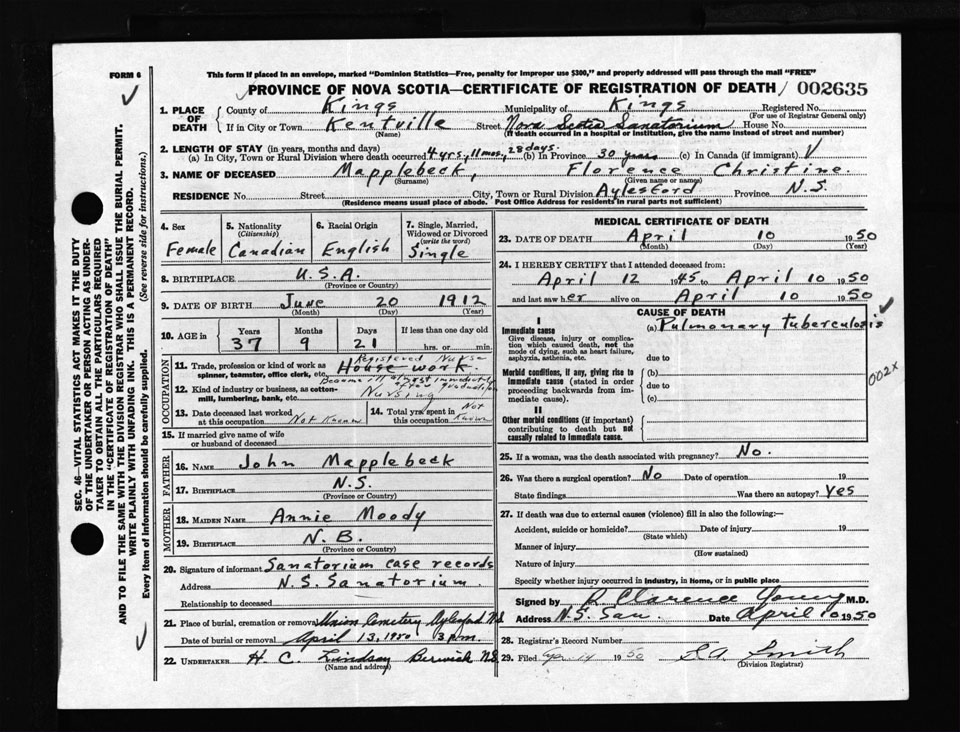 FORM 6
This form if placed in an envelope, marked "Dominion Statistics—Free, penalty for improper use $300," and properly addressed will pass through the mail "FREE"
PROVINCE OF NOVA SCOTIA—CERTIFICATE OF REGISTRATION OF DEATH 002635
1. PLACE OF DEATH
County of Kings Municipality of Kings Registered No.
(For use of Registrar General only)
If in City or Town Kentville Street Nova Scotia Sanatorium House No.
(Name) (If death occurred in a hospital or institution, give the name instead of street and number)
2. LENGTH OF STAY (in years, months and days)
(a) In City, Town or Rural Division where death occurred 4 yrs, 11 mos, 28 days. (b) In Province 30 years (c) In Canada (if immigrant)
3. NAME OF DECEASED Mapplebeck, Florence Christine.
(Surname) (Given name or names)
RESIDENCE No. Street City, Town or Rural Division Aylesford Province N.S.
(Residence means usual place of abode. Post Office Address for residents in rural parts not sufficient)
4. Sex Female
5. Nationality (Citizenship) Canadian
6. Racial Origin English
7. Single, Married, Widowed or Divorced (write the word) Single
8. BIRTHPLACE U.S.A.
(Province or Country)
9. DATE OF BIRTH June 20 1912
(Month) (Day) (Year)
10. AGE in Years Months Days If less than one day old
37 9 21 hrs. or min.
OCCUPATION
11. Trade, profession or kind of work as spinner, teamster, office clerk, etc. Registered Nurse House work.
Became ill almost immediately after graduation
12. Kind of industry or business, as cotton-mill, lumbering, bank, etc. Nursing
13. Date deceased last worked at this occupation Not Known
14. Total yrs. spent in this occupation Not Known
15. If married give name of wife or husband of deceased
FATHER
16. NAME John Mapplebeck
17. BIRTHPLACE N.S.
(Province or Country)
MOTHER
18. MAIDEN NAME Annie Moody
19. BIRTHPLACE N.B.
(Province or Country)
20. Signature of informant Sanatorium case records
Address N.S. Sanatorium.
Relationship to deceased
21. Place of burial, cremation or removal Union Cemetery Aylesford N.S.
Date of burial or removal April 13, 1950 3 p.m.
22. UNDERTAKER H. C. Lindsay Berwick N.S.
(Name and address)
MEDICAL CERTIFICATE OF DEATH
23. DATE OF DEATH April 10 1950
(Month) (Day) (Year)
24. I HEREBY CERTIFY that I attended deceased from:
April 12 1945 to April 10 1950
and last saw her alive on April 10 1950
CAUSE OF DEATH
I
Immediate cause (a) Pulmonary tuberculosis
Give disease, injury or complication which caused death, not the mode of dying, such as heart failure, asphyxia, asthenia, etc.
due to
Morbid conditions, if any, giving rise to immediate cause (stated in order proceeding backwards from immediate cause).
(b)
due to
(c)
002X
II
Other morbid conditions (if important) contributing to death but not causally related to immediate cause.
25. If a woman, was the death associated with pregnancy? No.
26. Was there a surgical operation? No Date of operation 19
State findings Was there an autopsy? Yes
27. If death was due to external causes (violence) fill in also the following:—
Accident, suicide or homicide? Date of injury 19
(State which)
Manner of injury
(How sustained)
Nature of injury
Specify whether injury occurred in Industry, in Home, or in public place
Signed by Clarence Young M.D.
Address N.S. San. Date April 10 1950
28. Registrar's Record Number
29. Filed Apr. 14 1950 S.A. Smith
(Division Registrar)
SEC. 46—VITAL STATISTICS ACT MAKES IT THE DUTY
OF THE UNDERTAKER OR PERSON ACTING AS UNDER-
TAKER TO OBTAIN ALL THE PARTICULARS REQUIRED
IN THE "CERTIFICATE OF REGISTRATION OF DEATH"
AND TO FILE THE SAME WITH THE DIVISION REGISTRAR WHO SHALL ISSUE THE BURIAL PERMIT.
WRITE PLAINLY WITH UNFADING INK. THIS IS A PERMANENT RECORD.
Every item of information should be carefully supplied. (See reverse side for instructions.)